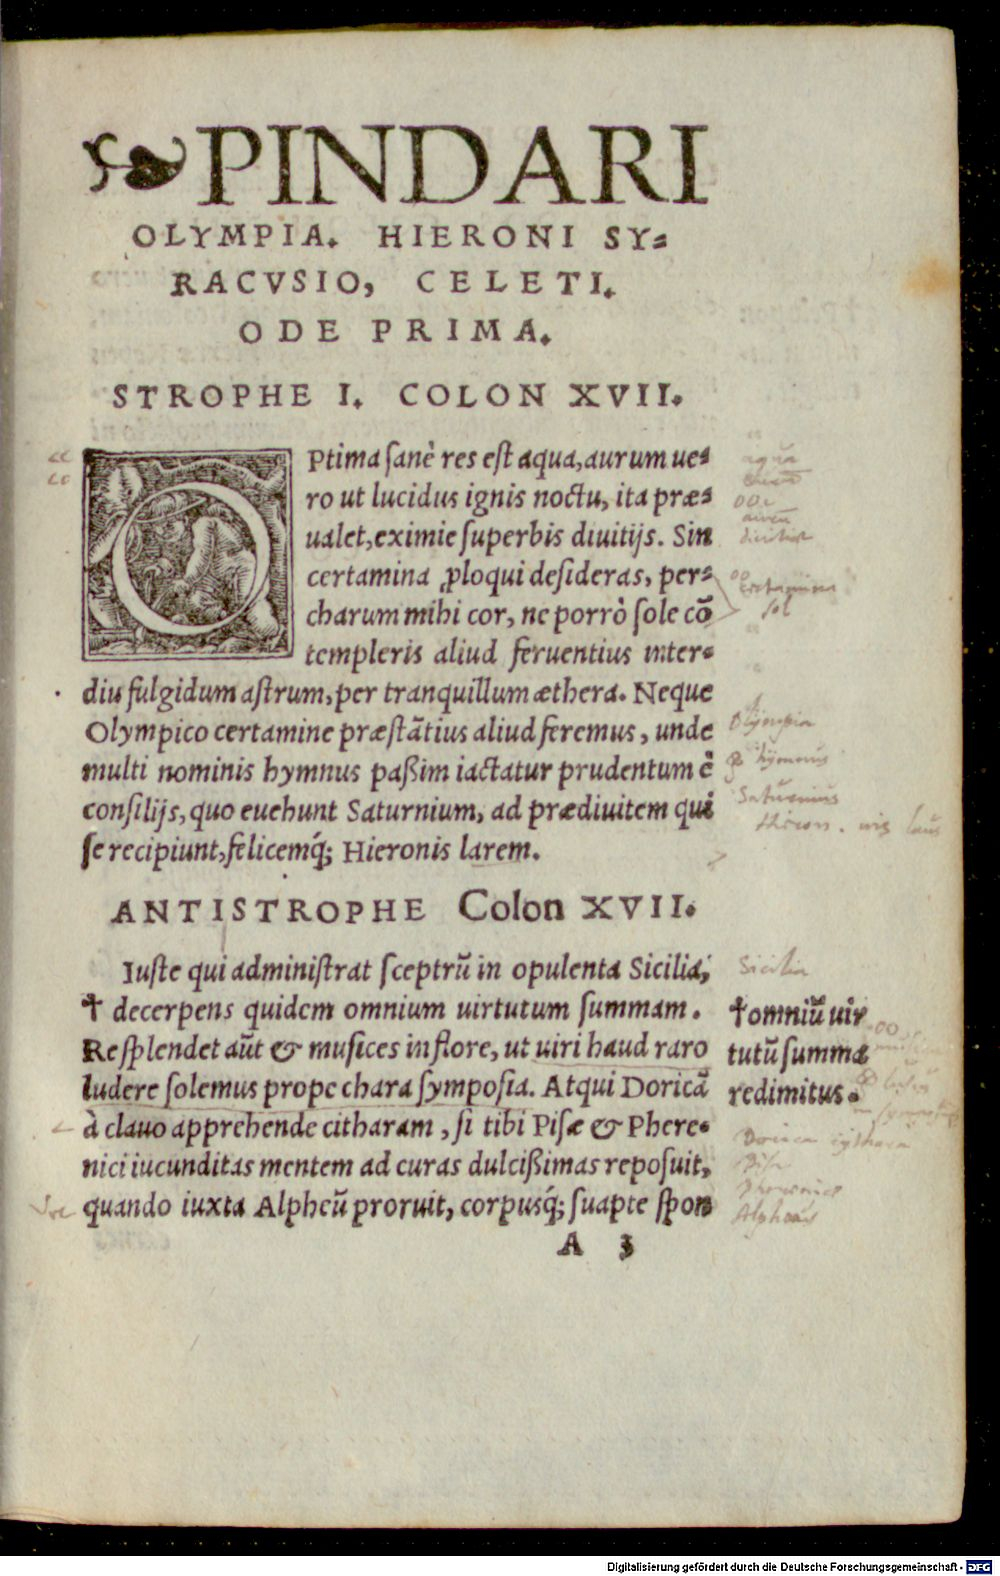 PINDARI
OLYMPIA. HIERONI SY=
RACVSIO, CELETI.
ODE PRIMA.
STROPHE I. COLON XVII.
OPtima sanè res est aqua, aurum ue=
ro ut lucidus ignis noctu, ita præ=
ualet, eximie superbis diuitijs. Sin
certamina ꝓloqui desideras, per=
charum mihi cor, ne porrò sole cõ
templeris aliud feruentius inter=
diu fulgidum astrum, per tranquillum æthera. Neque
Olympico certamine præstãtius aliud feremus, unde
multi nominis hymnus paßim iactatur prudentum è
consilijs, quo euehunt Saturnium, ad prædiuitem qui
se recipiunt, felicemq́; Hieronis larem.
ANTISTROPHE Colon XVII.
Iuste qui administrat sceptrũ in opulenta Sicilia,
Sicilia
✝ decerpens quidem omnium uirtutum summam.
Resplendet aũt & musices in flore, ut uiri haud raro
ludere solemus prope chara symposia. Atqui Doricã
à clauo apprehende citharam, si tibi Pisæ & Phere=
nici iucunditas mentem ad curas dulcißimas reposuit,
quando iuxta Alpheũ proruit, corpusq́; suapte spon
✝omniũ uir
tutũ summa
redimitus.
A 3
aqua
certamina
sol
Olympia
hymnus
Saturnius
Alpheus
Digitalisierung gefördert durch die Deutsche Forschungsgemeinschaft - DFG